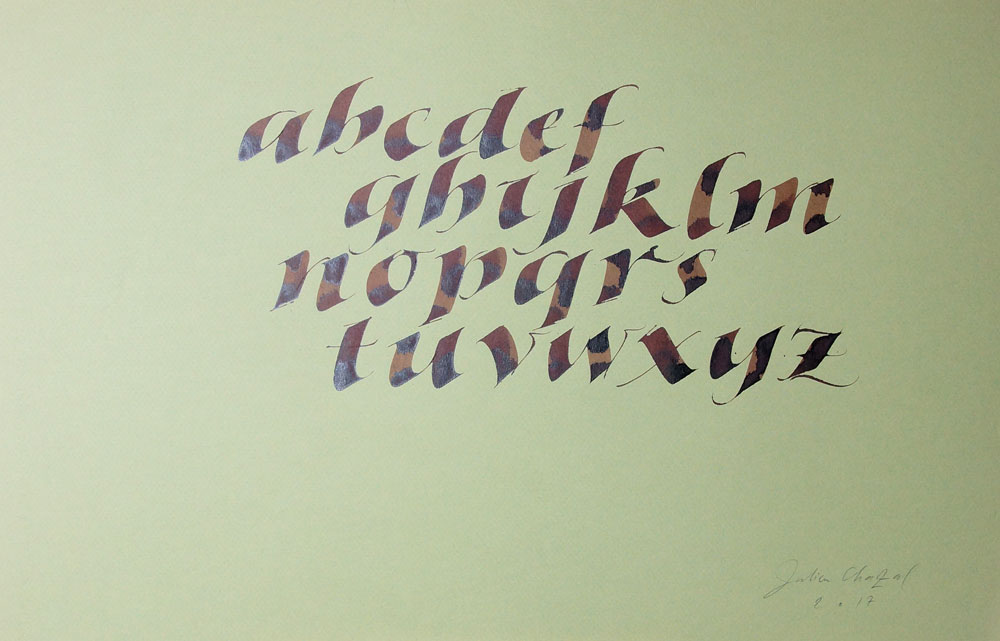 abcdef
ghijklm
nopqrs
tuvwxyz
Julien Chazal
2 . 17